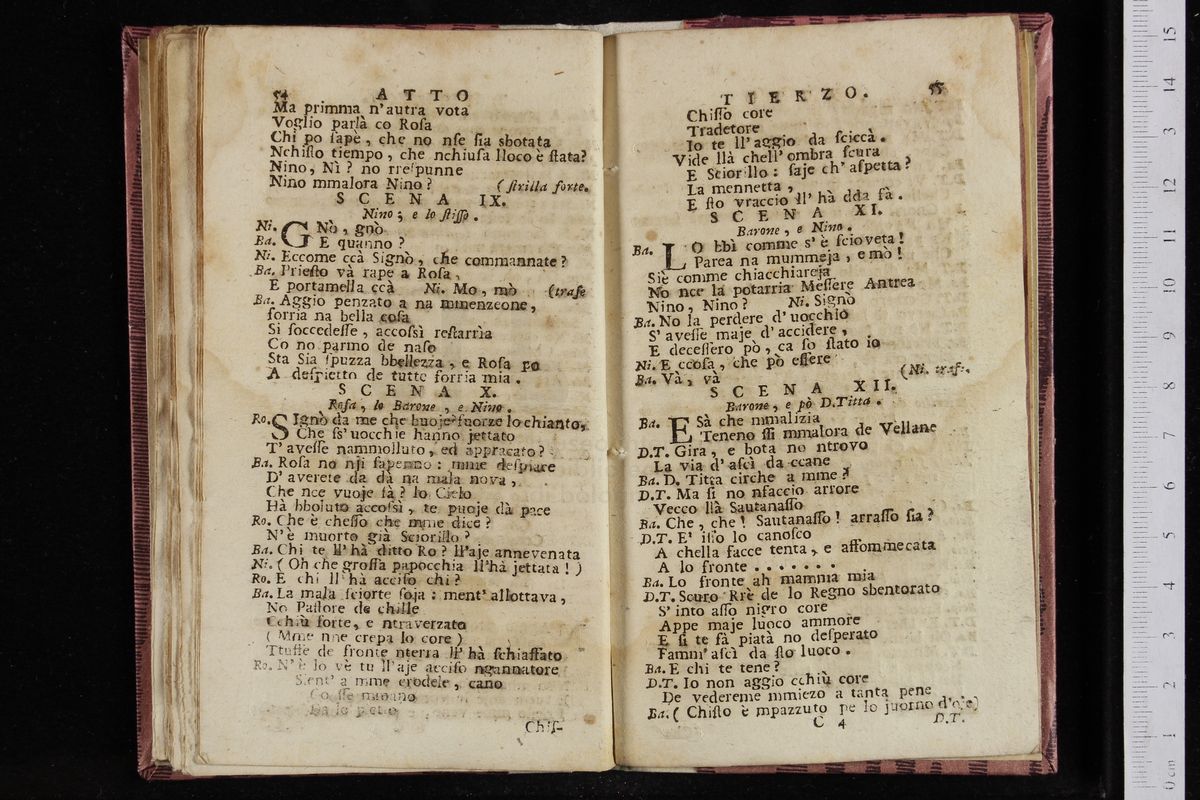 54 ATTO
Ma primma n'autra vota
Voglio parlà co Rosa
Chi po sape, che no nse sia sbotata
Nchisto tiempo, che nchiusa lloco è stata?
Nino, Nì? no rrespunne
Nino mmalora Nino? (strilla forte.
SCENA IX.
Nino; e lo stisso.
Ni. GNò, gnò
Ba. E quanno?
Ni. Eccome ccà Signò, che commannate?
Ba. Priesto và rape a Rosa,
E portamella ccà Ni. Mo, mò (trase
Ba. Aggio penzato a na mmenzeone,
sorria na bella cosa
Si soccedesse, accossì restarrìa
Co no parmo de naso
Sta Sia spuzza bbellezza, e Rosa po
A despietto de tutte sorria mia.
SCENA X.
Rosa, lo Barone, e Nino.
Ro. SIgnò da me che buoje? fuorze lo chianto,
Che ss'uocchie hanno jettato
T'avesse nammolluto, ed appracato?
Ba. Rosa no nji sapenno: mme despiare
D'averete da dà na mala nova,
Che nce vuoje fà? lo Cielo
Hà bboluto accossì, te puoje dà pace
Ro. Che è chesso che mme dice?
N'è muorto già Sciorillo?
Ba. Chi te ll'hà ditto Ro? ll'aje annevenata
Ni. (Oh che grossa papocchia ll'hà jettata!)
Ro. E chi ll'hà acciso chi?
Ba. La mala sciorte soja: ment'allottava,
No Pastore de chille
Cchiù forte, e ntraverzato
(Mme nne crepa lo core)
Ttuffe de fronte nterra ll'hà schiaffato
Ro. N'è lo vè tu ll'aje acciso ngannatore
Sient'a mme crodele, cano
Co sse mmano
Da lo pietto
Chis-
TIERZO. 55
Chisso core
Tradetore
Io te ll'aggio da sciccà.
Vide llà chell'ombra scura
E Sciorillo: saje ch'aspetta?
La mennetta,
E sto vraccio ll'hà dda fà.
SCENA XI.
Barone, e Nino.
Ba. LO bbì comme s'è scioveta!
Parea na mummeja, e mò!
Siè comme chiacchiareja
No nce la potarria Messere Antrea
Nino, Nino? Ni. Signò
Ba. No la perdere d'uocchio
S'avesse maje d'accidere,
E decessero pò, ca so stato io
Ni. E ccosa, che pò essere
Ba. Và, và (Ni. trase.
SCENA XII.
Barone, e pò D.Titta.
Ba. ESà che mmalizia
Teneno ssi mmalora de Vellane
D.T. Gira, e bota no ntrovo
La via d'ascì da ccane
Ba. D. Titta cirche a mme?
D.T. Ma si no nfaccio arrore
Vecco llà Sautanasso
Ba. Che, che! Sautanasso! arrasso sia?
D.T. E' isso lo canosco
A chella facce tenta, e affommecata
A lo fronte . . . . . . .
Ba. Lo fronte ah mamma mia
D.T. Scuro Rrè de lo Regno sbentorato
S'into asso nigro core
Appe maje luoco ammore
E si te fà piatà no desperato
Famm'ascì da sto luoco.
Ba. E chi te tene?
D.T. Io non aggio cchiù core
De vedereme mmiezo a tanta pene
Ba. (Chisto è mpazzuto pe lo juorno d'oje)
C 4 D.T.